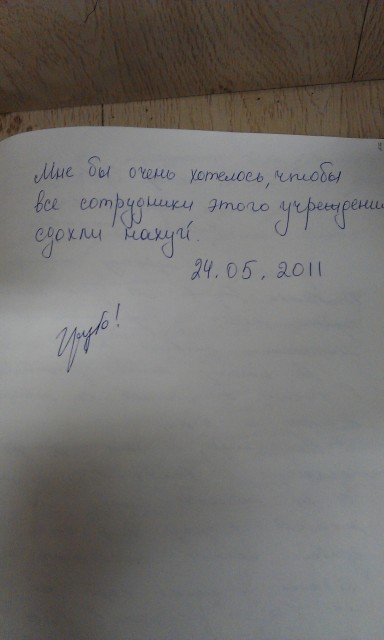 Мне бы очень хотелось, чтобы
все сотрудники этого учреждени
сдохли нахуй.
24.05.2011
Грубо!